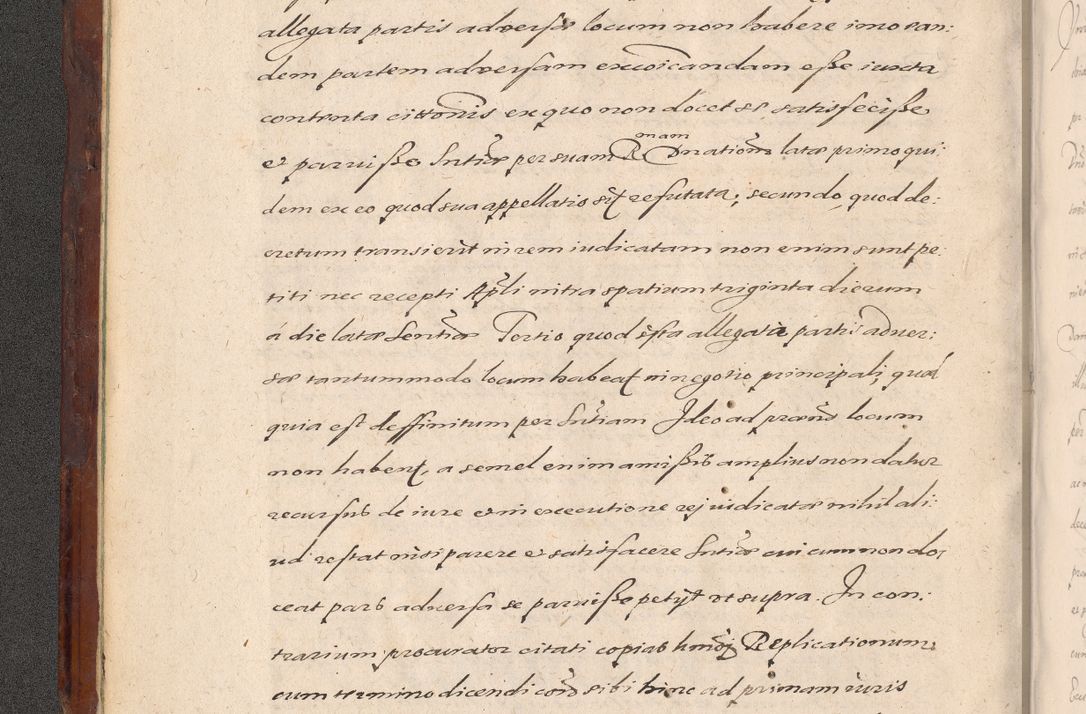 allegata partis adversæ locum non habere imo ean:
dem partem adversam excoicandam esse iuxta
contenta citt̃onis ex quo non docet se satisfecisse
et paruisse Sntiæ per suam R mam Dnationẽ latæ primo qui
dem ex eo quod sua appellatio sit refutata; secundo, quod de:
cretum transierit in rem iudicatam non enim sunt pe:
titi nec recepti Apli intra spatium triginta dierum
á die latæ Sentiæ Tertio quod ista allegata partis adver:
sæ tantummodo locum habeat in negotio principali, quod
quia est deffinitum per Sntiam Ideo ad præns locum
non habent, a semel enim amissis amplius non datur
recursus de iure et in executione rej iudicatæ nihil ali:
ud restat nisi parere et satisfacere Sntiæ cui cum non do:
ceat pars adversa se paruisse petijt ut supra. In con:
trarium procurator citati copias hmõj Replicationum
cum termino dicendi cõis sibi hinc ad primam iuris